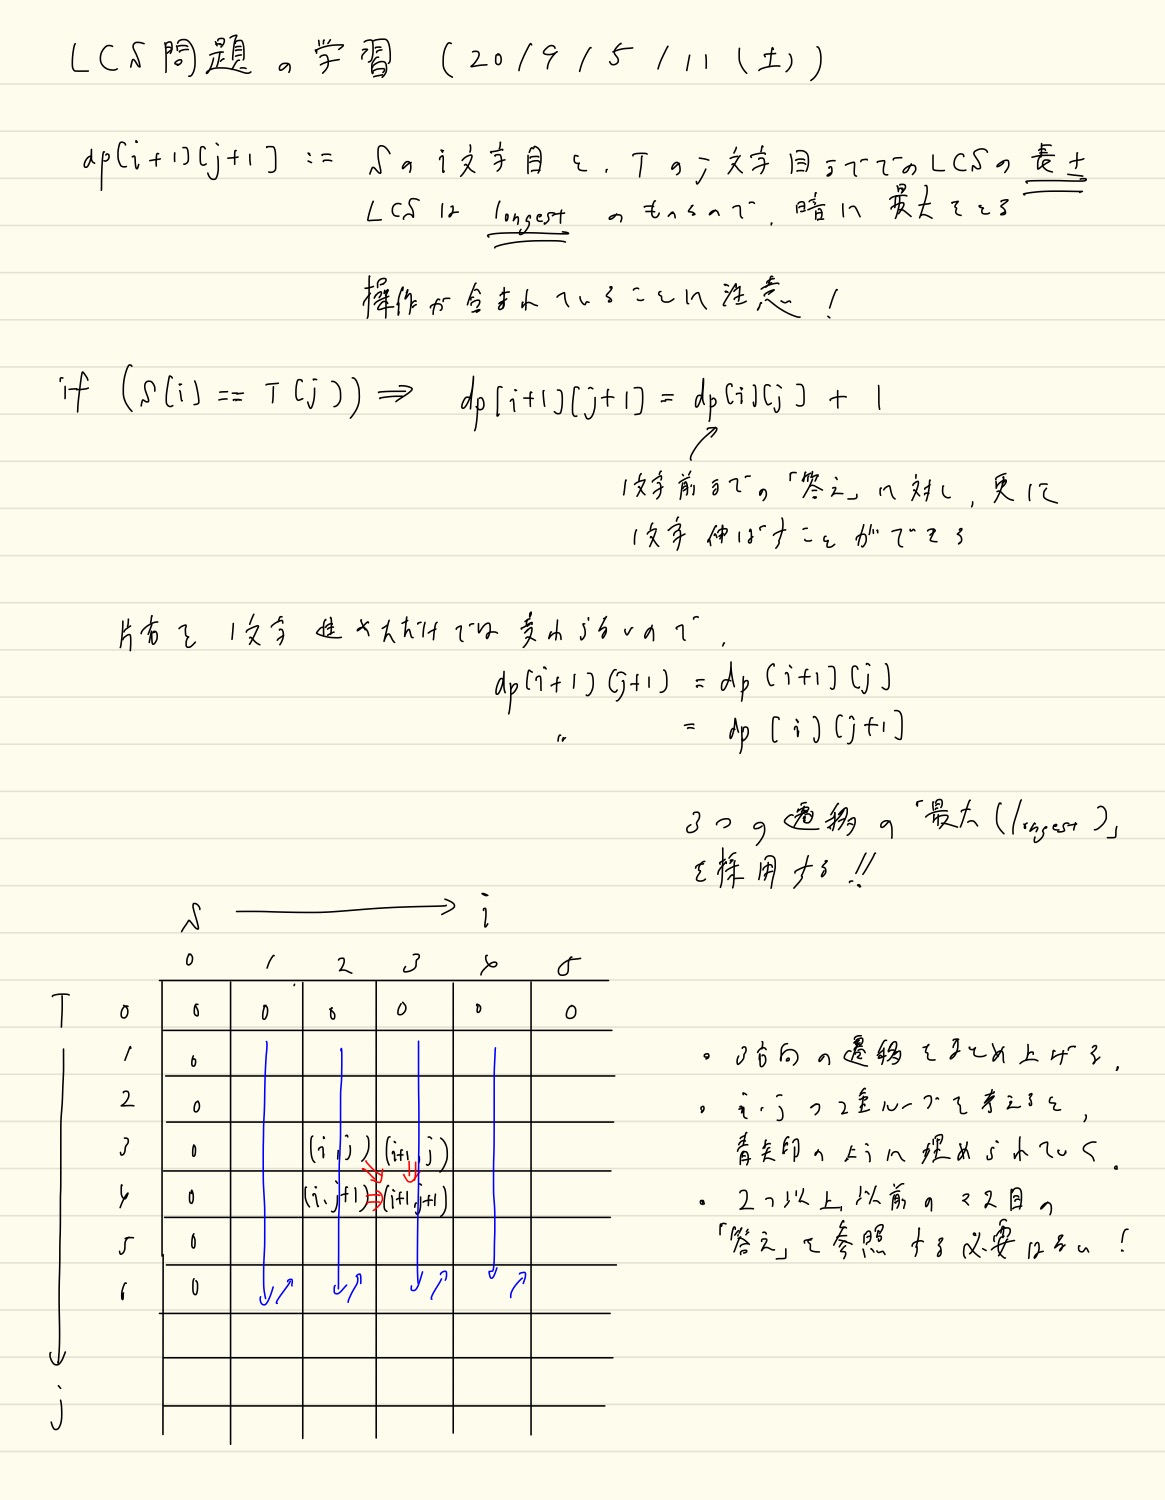 LCS問題の学習 (2019/5/11(土))
dp[i+1][j+1] := Sのi文字目と、Tのj文字目まででのLCSの長さ
LCSは longest のものなので、暗に最大をとる
操作が含まれていることに注意!
if (S[i] == T[j]) ⇒ dp[i+1][j+1] = dp[i][j] + 1
1文字前までの「答え」に対し、更に
1文字伸ばすことができる
片方を1文字進めただけでは変わらないので、
dp[i+1][j+1] = dp[i+1][j]
〃 = dp[i][j+1]
3つの遷移の「最大(longest)」
を採用する!!
S → i
0 1 2 3 4 5
T 0 0 0 0 0 0 0
1 0
2 0
3 0 (i,j) (i+1,j)
4 0 (i,j+1) (i+1,j+1)
5 0
6 0
j
・3方向の遷移をまとめ上げる.
・i,jの2重ループで考えると,
青矢印のように埋められていく.
・2つ以上以前のマス目の
「答え」を参照する必要はない!